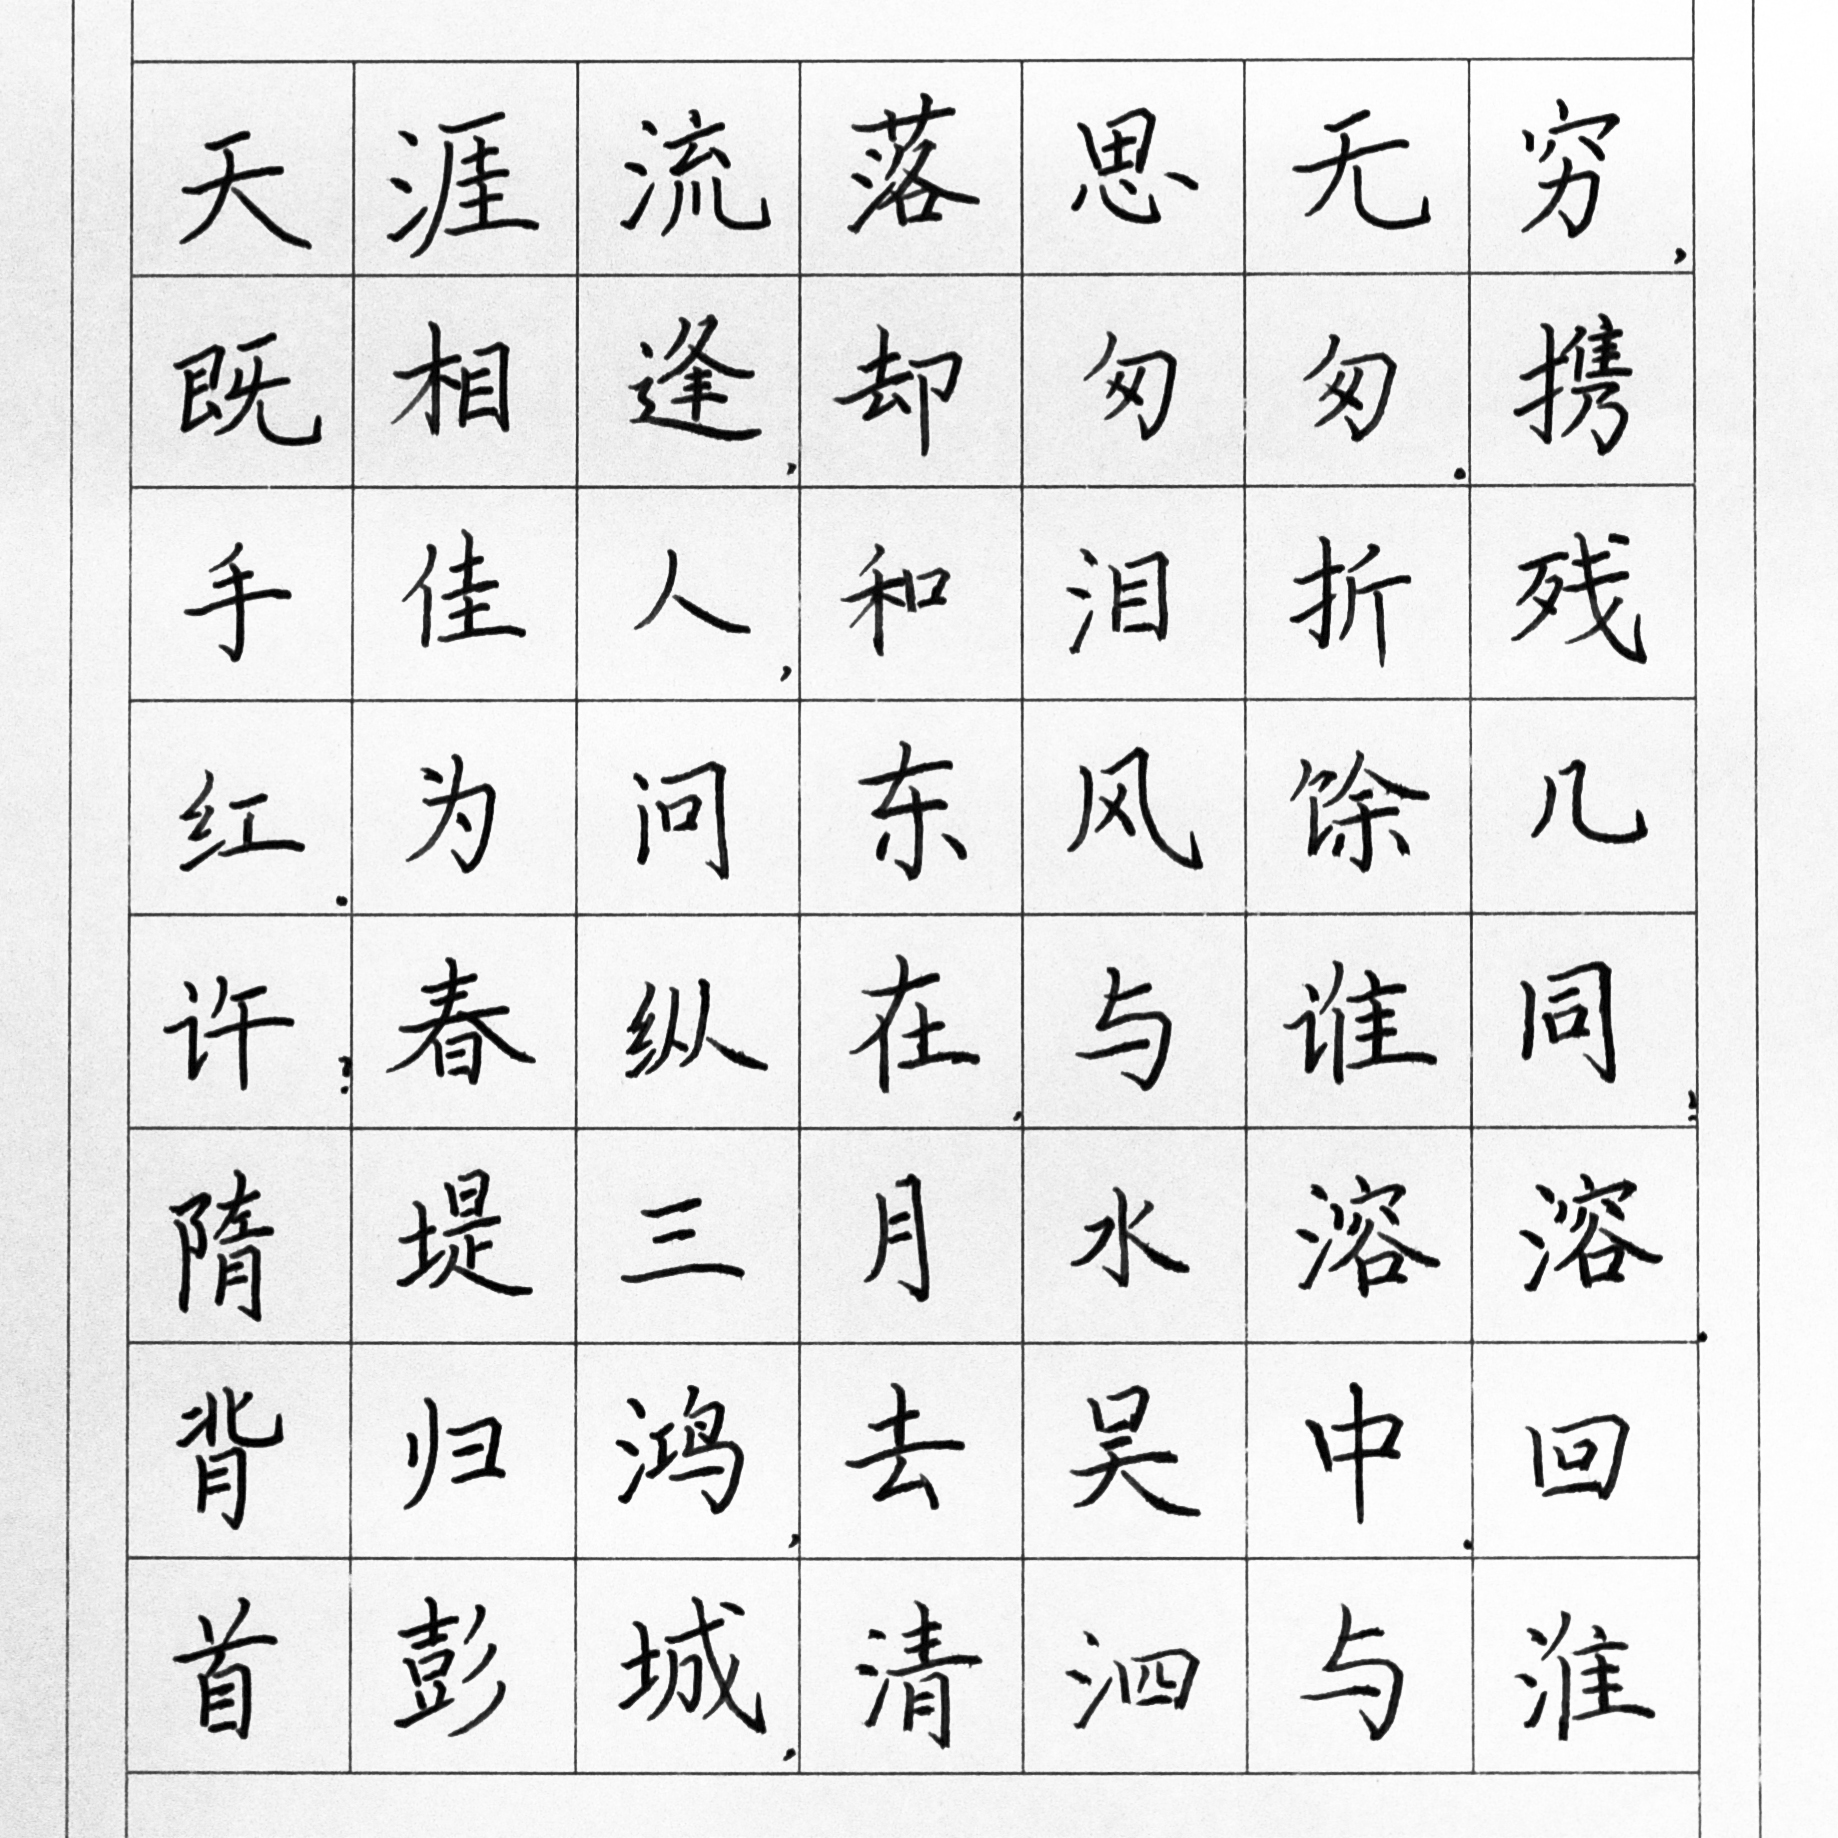 天涯流落思无穷，
既相逢，却匆匆。携
手佳人，和泪折残
红。为问东风馀几
许？春纵在，与谁同！
隋堤三月水溶溶。
背归鸿，去吴中。回
首彭城，清泗与淮